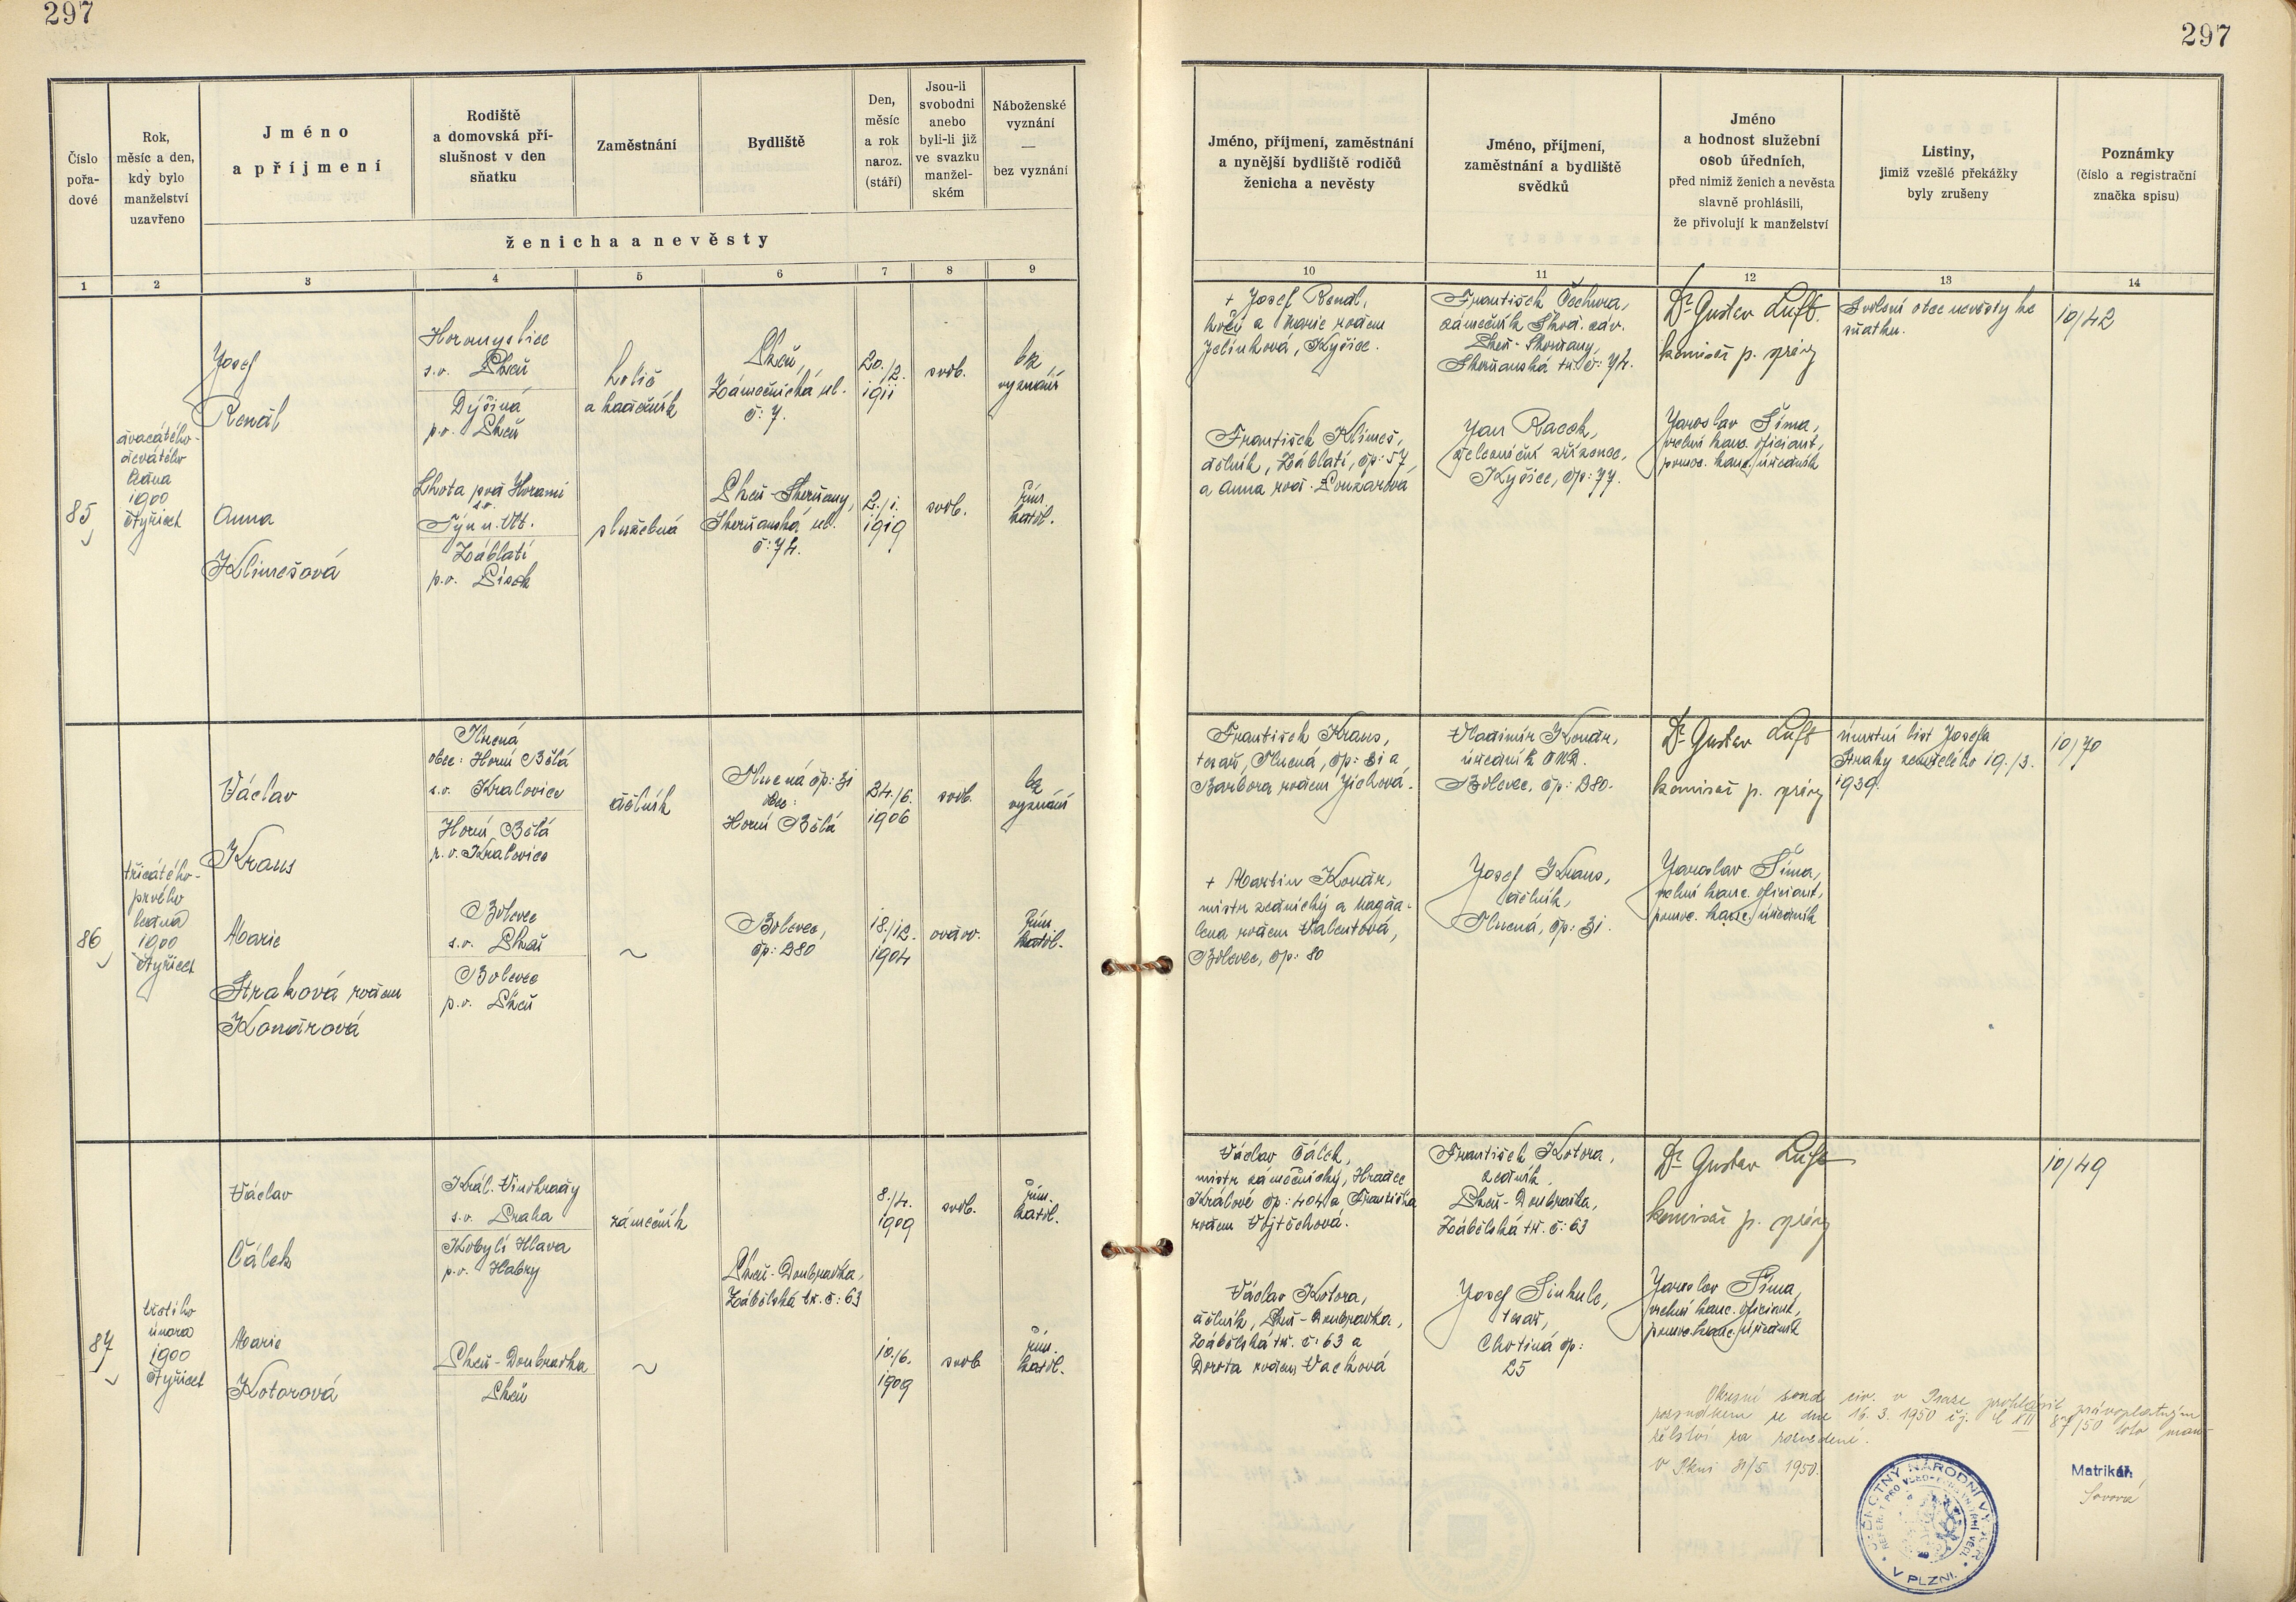 297
297
Číslo
pořa-
dové
Rok,
měsíc a den,
kdy bylo
manželství
uzavřeno
Jméno
a příjmení
Rodiště
a domovská pří-
slušnost v den
sňatku
Zaměstnání
Bydliště
Den,
měsíc
a rok
naroz.
(stáří)
Jsou-li
svobodni
anebo
byli-li již
ve svazku
manžel-
ském
Náboženské
vyznání
—
bez vyznání
ženicha a nevěsty
1 2 3 4 5 6 7 8 9
Jméno, příjmení, zaměstnání
a nynější bydliště rodičů
ženicha a nevěsty
Jméno, příjmení,
zaměstnání a bydliště
svědků
Jméno
a hodnost služební
osob úředních,
před nimiž ženich a nevěsta
slavně prohlásili,
že přivolují k manželství
Listiny,
jimiž vzešlé překážky
byly zrušeny
Poznámky
(číslo a registrační
značka spisu)
10 11 12 13 14
85
dvacátého-
devátého
ledna
1900
čtyřicet
Josef
Renál
Horomyslice
s.o. Plzeň
Dýšina
p.o. Plzeň
holič
a kadeřník
Plzeň,
Zámečnická ul.
č: 7.
20./2.
1911
svob.
bez
vyznání
Anna
Klimešová
Lhota pod Horami
s.o.
Týn n. Vlt.
Záblatí
p.o. Písek
služebná
Plzeň-Skvrňany,
Skvrňanská ul.
č: 74.
2./1.
1919
svob.
řím.
katol.
+ Josef Renál,
a Marie rodem
Jelínková, Kyšice.
František Klimeš,
dělník, Záblatí, čp: 57,
a Anna rod. Loužarová
František Čechura,
zámečník Škod. záv.
Plzeň-Skvrňany,
Skvrňanská tř. č: 74.
Jan Racek,
železniční zřízenec,
Kyšice, čp: 77.
Dr Gustav Luft
komisař p. správy
Jaroslav Šíma,
vrchní kanc. oficiant,
pomoc. kanc. úředník
Svolení otce nevěsty ke
sňatku.
10/42
86
třicátého-
prvého
ledna
1900
čtyřicet
Václav
Kraus
Mrená
obec: Horní Bělá
s.o. Kralovice
Horní Bělá
p.o. Kralovice
dělník
čp: 31
obec:
Horní Bělá
24./6.
1906
svob.
bez
vyznání
Marie
Straková rodem
Konárová
Bolevec
s.o. Plzeň
Bolevec
p.o. Plzeň
~
Bolevec,
čp: 280
18./12.
1904
ovdov.
řím.
katol.
František Kraus,
tesař, čp: 31 a
Barbora rodem Jichová.
+ Martin Konár,
mistr zednický a Magda-
lena rodem Valentová,
Bolevec, čp: 80
Vladimír Konár,
úředník
Bolevec, čp: 280.
Josef Kraus,
dělník,
čp: 31.
Dr Gustav Luft
komisař p. správy
Jaroslav Šíma,
vrchní kanc. oficiant,
pomoc. kanc. úředník
úmrtní list Josefa
Straky zemřelého 19./3.
1939.
10/70
87
třetího
února
1900
čtyřicet
Václav
Čálek
Král. Vinohrady
s.o. Praha
Kobylí Hlava
p.o. Habry
zámečník
Plzeň-Doubravka,
Zábělská tř. č: 63
8./4.
1909
svob.
řím.
katol.
Marie
Kotorová
Plzeň-Doubravka
Plzeň
~
10./6.
1909
svob
řím.
katol.
Václav Čálek,
mistr zámečnický, Hradec
Králové čp: 404 a Františka
rodem Vojtěchová.
Václav Kotora,
dělník, Plzeň-Doubravka,
Zábělská tř. č: 63 a
Dorota rodem Vacková
František Kotora,
zedník,
Plzeň-Doubravka,
Zábělská tř. č: 63
Josef Sinkule,
tesař,
Chotiná čp:
25
Dr Gustav Luft
komisař p. správy
Jaroslav Šíma,
vrchní kanc. oficiant,
pomoc. kanc. úředník
10/49
Okresní soud civ. v Praze prohlásil právoplatným
rozsudkem ze dne 16. 3. 1950 čj. C XII 87/50 toto man-
želství za rozvedené.
V Plzni 31/5 1950.
JEDNOTNÝ NÁRODNÍ VÝBOR
V PLZNI.
Matrikář: